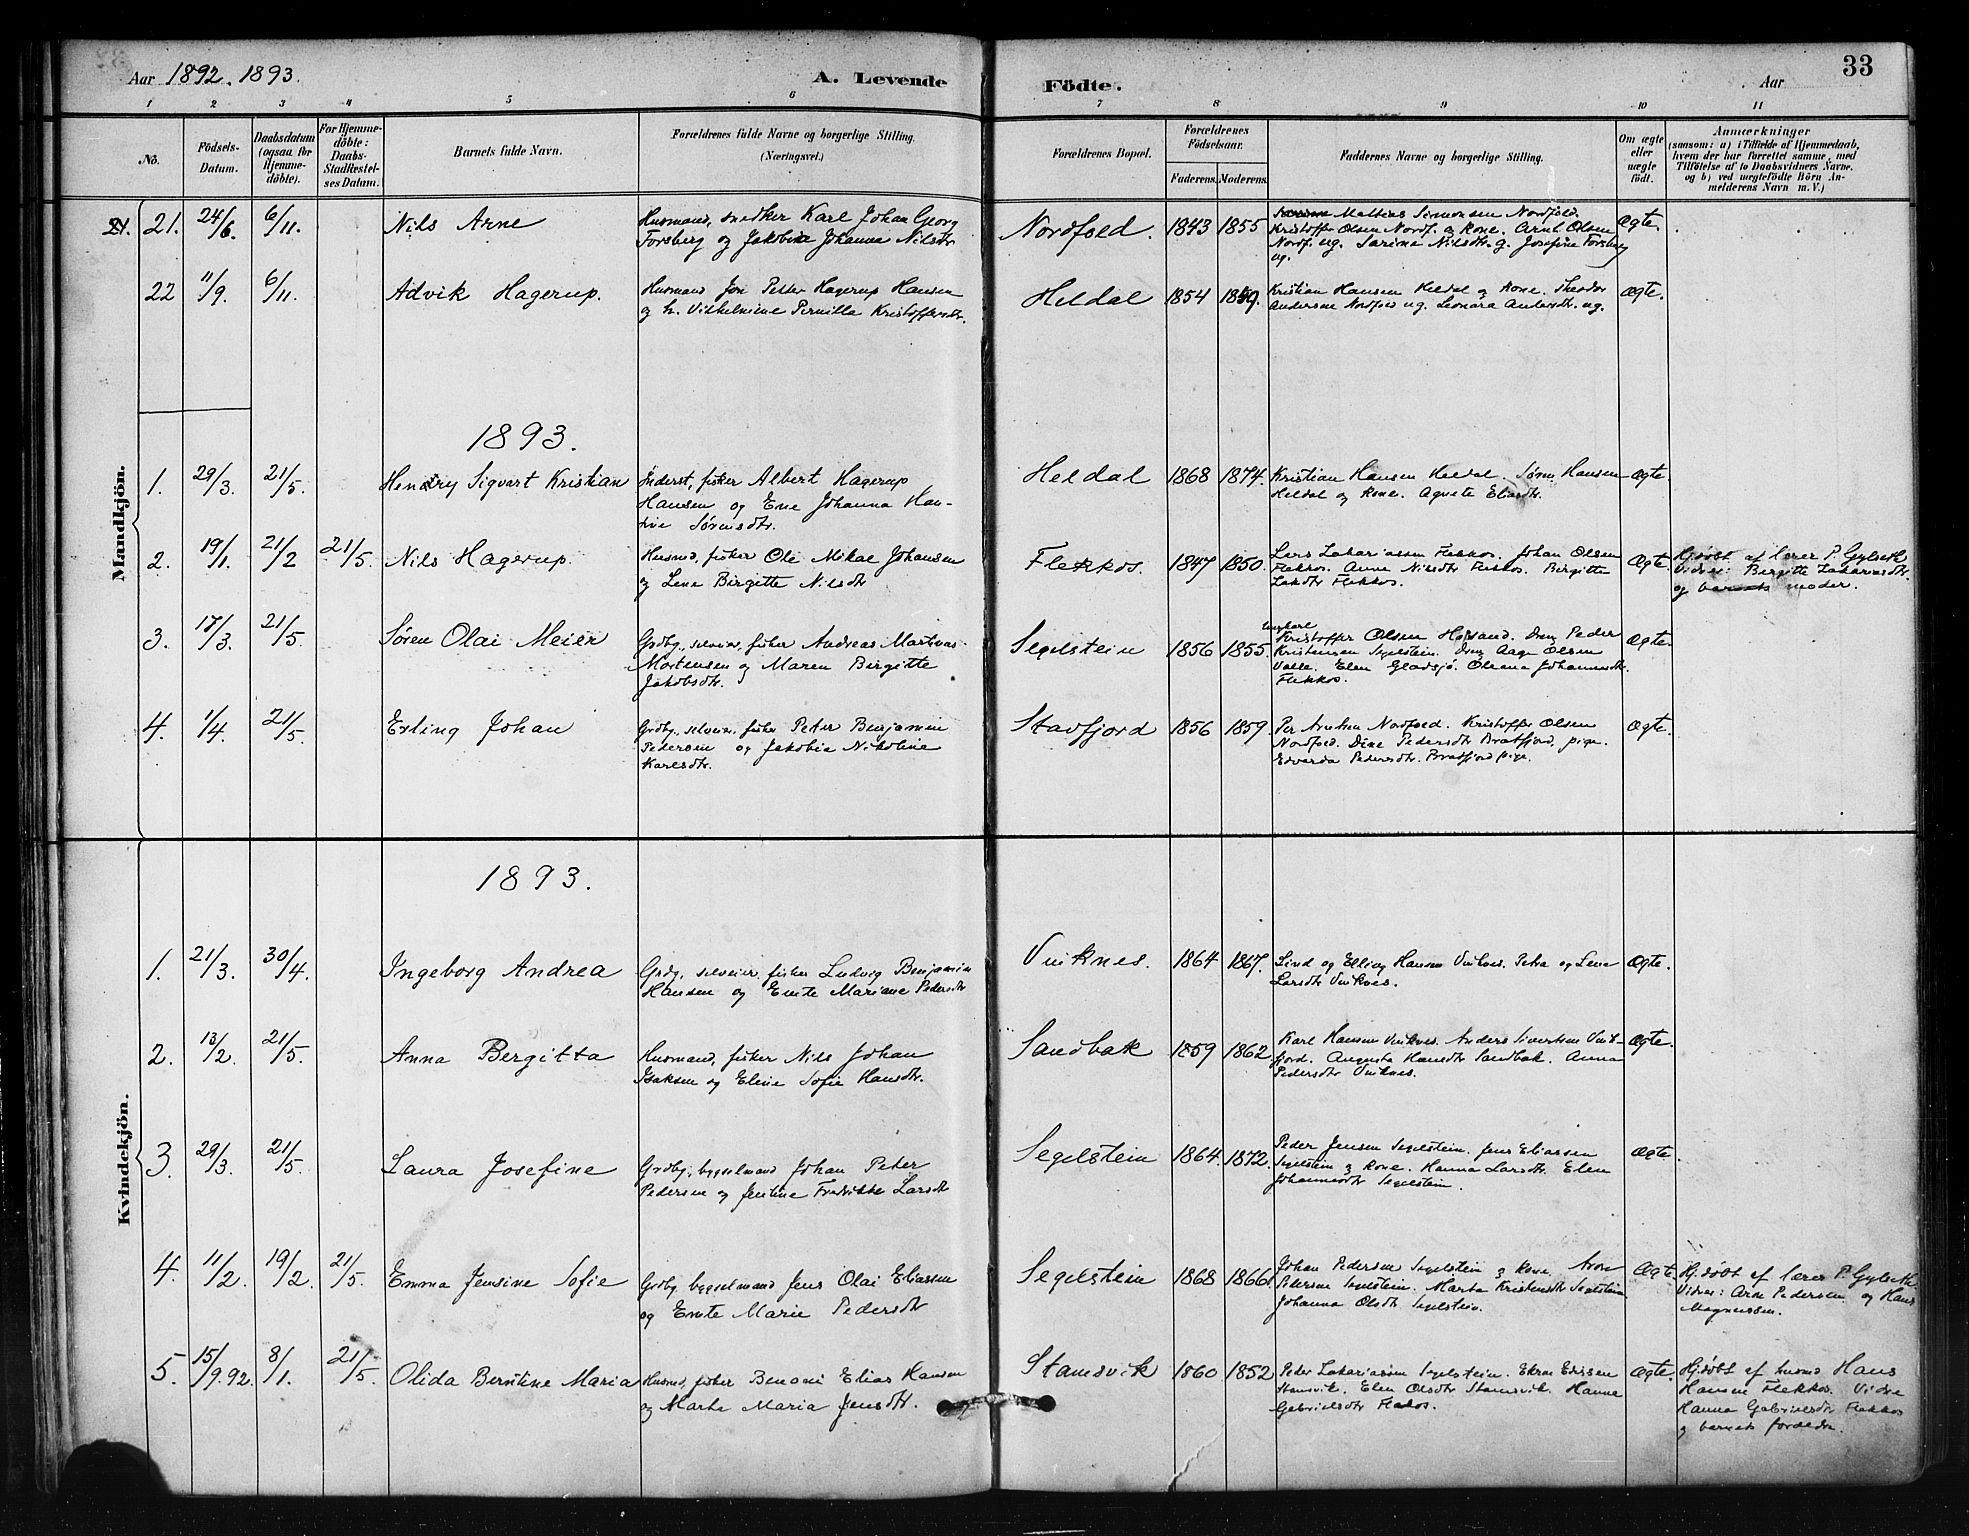 Aar 1892. 1893.
A. Levende Födte.
Aar
33
1 2 3 4 5 6 7 8 9 10 11
No.
Födsels-Datum.
Daabsdatum (ogsaa for Hjemme-döbte).
For Hjemme-döbte: Daabs-Stadfæstel-ses Datum.
Barnets fulde Navn.
Forældrenes fulde Navne og borgerlige Stilling.
(Næringsvei.)
Forældrenes Bopæl.
Forældrenes Födselsaar.
Faderens. Moderens.
Faddernes Navne og borgerlige Stilling.
Om ægte eller uægte födt.
Anmærkninger
(saasom: a) i Tilfælde af Hjemmedaab,
hvem der har forrettet samme, med
Tilföielse af to Daabsvidners Navne,
og b) ved uægtefödte Börn An-
melderens Navn m. V.)
Mandkjön.
21. 24/6. 6/11. Nils Arne
Husmand, snedker Karl Johan Georg
Forsberg og Jakobine Johanna Nilsdtr
Nordfoed. 1843 1855
Mathias Simonsen Nordfod.
Kristoffer Olsen Nordf. og kone. Arnt Olsen
Nordf. ug. Sarine Nilsdtr. g. Josefine Forsberg
ug.
Ægte.
22 11/9. 6/11. Advik Hagerup.
Husmand Jon Petter Hagerup Hansen
og h. Vilhelmine Pernille Kristoffersdtr.
Heldal 1854 1849.
Kristian Hansen Heldal og kone. Theodor
Andersen Nordfod ug. Leonara Antonsdtr. ug.
Ægte.
1893.
1. 29/3. 21/5. Hendry Sigvart Kristian
Inderst, fisker Albert Hagerup
Hansen og Ene Johanna Han-
 Sørensdtr.
Heldal 1868 1874.
Kristian Hansen Heldal. Søren Hansen
Heldal og kone. Agnete Eliasdtr.
Ægte.
2. 19/1. 21/2 21/5. Nils Hagerup.
Husmd, fisker Ole Mikal Johansen
og Lene Birgitte Nilsdtr
Flekkos. 1847 1850.
Lars Zakariassen Flekkos. Johan Olsen
Flekkos. Anne Nilsdtr Flekkos. Birgitte
Zakdtr Flekkos.
Ægte.
Hj.døbt af lærer P. Gylseth
Vidner: Birgitte Zakariasdtr.
og barnets moder.
3. 17/3. 21/5. Søren Olai Meier
Grdbr., selveier, fisker Andreas Martinus
Mortensen og Maren Birgitte
Jakobsdtr.
Segelstein 1856 1855.
Ungkarl
Kristoffer Olsen Høgsand. Dreng Peder
Kristensen Segelstein. Dreng Aage Olsen
Valle. Elen Gladsjø. Oleana Johannesdtr.
Flekkos.
Ægte.
4. 1/4. 21/5. Erling Johan
Grdbr., selveier, fisker Peter Benjamin
Pedersen og Jakobia Nikoline
Karlsdtr.
Stavfjord 1856 1859.
Per Arntsen Nordfoed. Kristoffer Olsen
Nordfoed. Dine Pedersdtr Bratfjord, pige.
Edvarda Pedersdtr. Bratfjord pige.
Ægte.
Kvindekjön.
1893.
1. 21/3. 30/4. Ingeborg Andrea
Grdbr., selveier, fisker Ludvig Benjamin
Hansen og Emte Mariane Pedersdtr
Vniknes. 1864 1867.
Lind og Elling Hansen Vniknes. Petra og Lene
Larsdtr Vniknes.
Ægte.
2. 13/2. 21/5. Anna Bergitta
Husmand, fisker Nils Johan
Isaksen og Eline Sofie Hansdtr.
Sandbak 1859 1862
Karl Hansen Vniknes. Anders Sivertsen Vnik-
fjord. Augusta Hansdtr Sandbak. Anna
Pedersdtr Vniknes.
Ægte.
3. 29/3. 21/5. Laura Josefine
Grdbr, bygselmand Johan Peter
Pedersen og Jentine Fredrikke Larsdtr
Segelstein 1864. 1872.
Peder Jensen Segelstein. Jens Eliassen
Segelstein og kone. Hanna Larsdtr. Elen
Johannesdtr Segelstein.
Ægte
4. 11/2. 19/2. 21/5. Emma Jensine Sofie
Grdbr. bygselmand Jens Olai Eliassen
og Emte Marie Pedersdtr
Segelstein 1868 1866.
Johan Pedersen Segelstein og kone. Arne
Petersen Segelstein. Marta Kristensdtr Segelstein
Johanna Olsdtr Segelstein.
Ægte.
Hj.døbt af lærer P. Gylseth
Vidner: Arne Pedersen og Hans
Magnussen.
5. 15/9.92. 8/1. 21/5. Olida Berntine Maria
Husmd, fisker Benoni Elias Hansen
og Marta Maria Jensdtr.
Stamsvik 1860 1852
Peder Zakariassen Segelstein. Ekran Eriksen
Stamsvik. Elen Olsdtr Stamsvik. Hanna
Gabrielsdtr Flekkos.
Ægte.
Hj.døbt af husmd Hans
Hansen Flekkos. Vidner
Hanna Gabrielsdtr Flekkos
og barnets forældre.